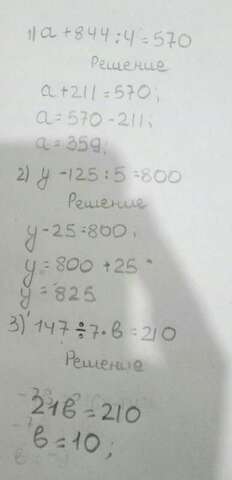 1) a + 844 : 4 = 570
Решение
a + 211 = 570;
a = 570 - 211;
a = 359;
2) y - 125 : 5 = 800
Решение
y - 25 = 800;
y = 800 + 25
y = 825
3) 147 ÷ 7 · в = 210
Решение
21в = 210
в = 10;